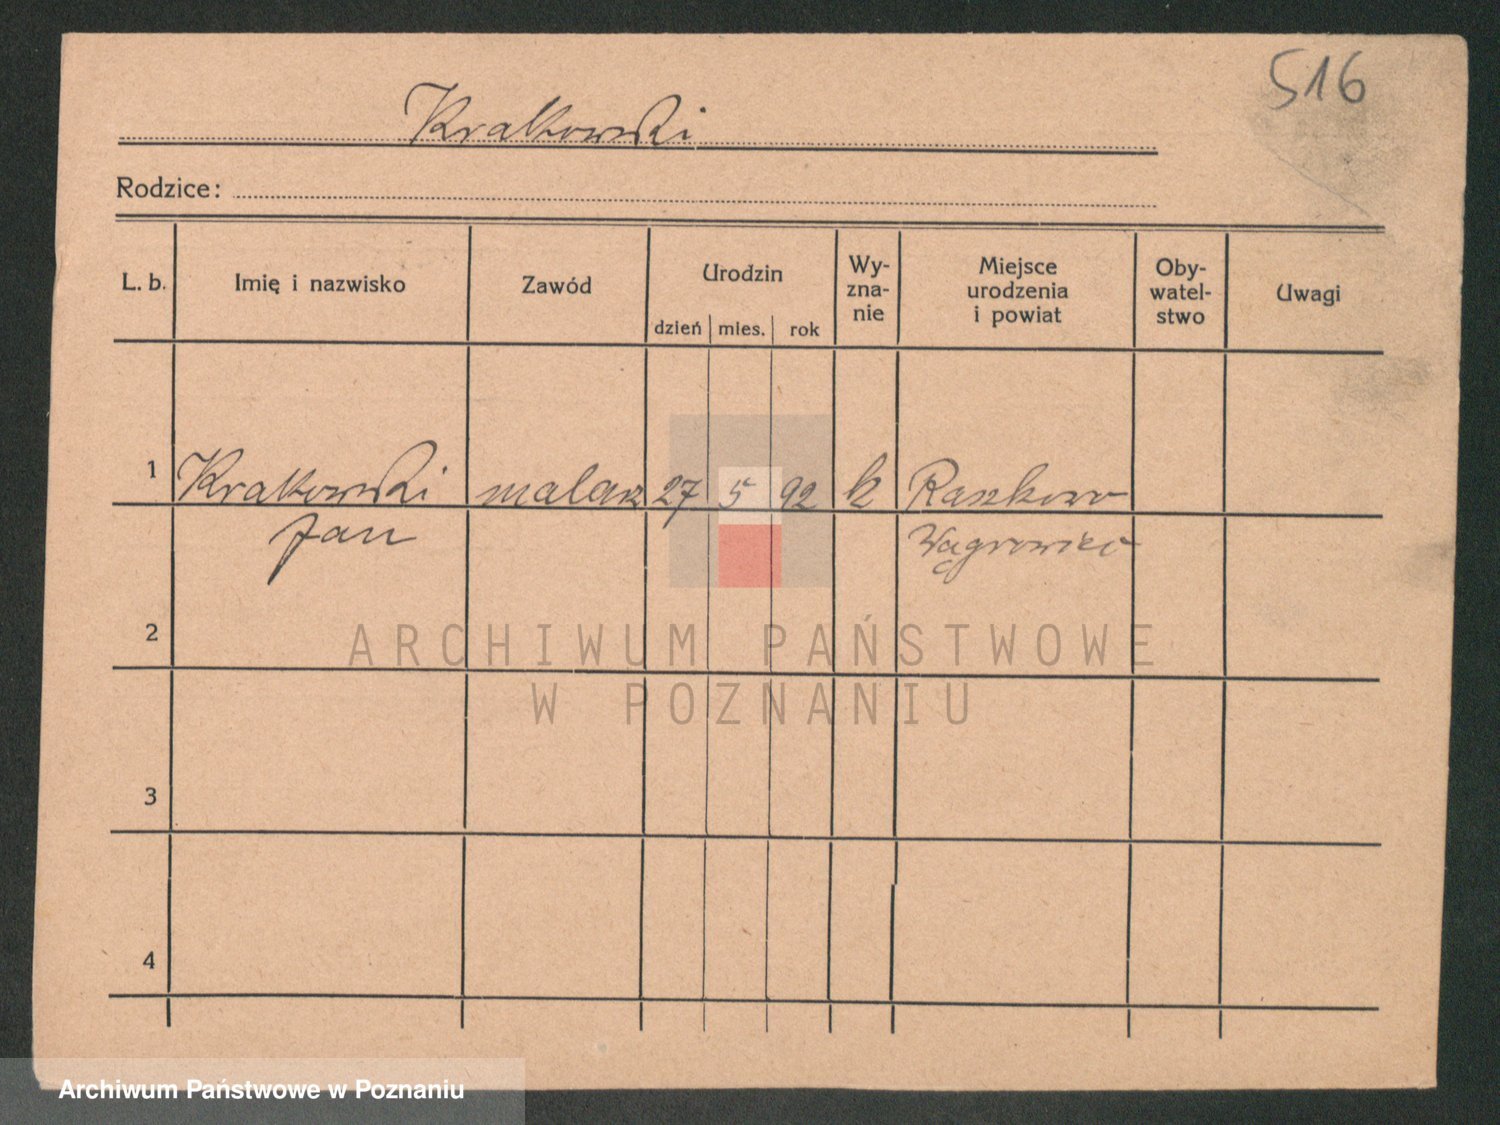 516
Krakowski
Rodzice:
L. b.
Imię i nazwisko
Zawód
Urodzin
dzień mies. rok
Wy-
zna-
nie
Miejsce
urodzenia
i powiat
Oby-
watel-
stwo
Uwagi
1 Krakowski malarz 27 5 92 k Raszkowo
Jan Wągrowiec
2
3
4
ARCHIWUM PAŃSTWOWE
W POZNANIU
Archiwum Państwowe w Poznaniu